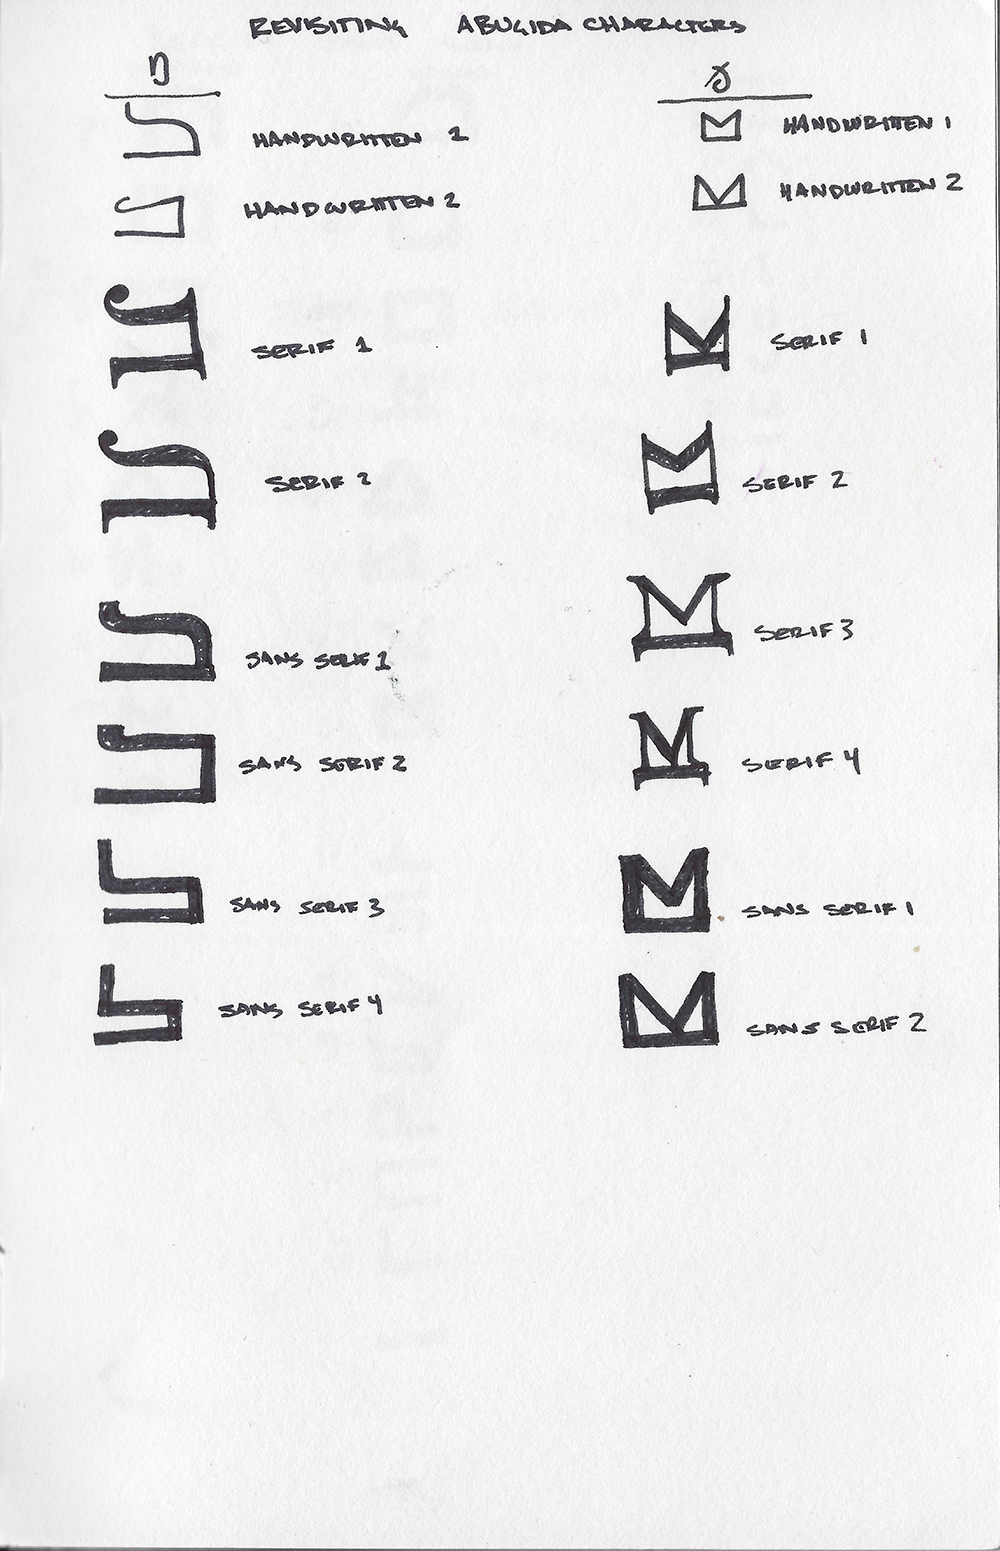 REVISITING ABUGIDA CHARACTERS
HANDWRITTEN 1
HANDWRITTEN 2
SERIF 1
SERIF 2
SANS SERIF 1
SANS SERIF 2
SANS SERIF 3
SANS SERIF 4
HANDWRITTEN 1
HANDWRITTEN 2
SERIF 1
SERIF 2
SERIF 3
SERIF 4
SANS SERIF 1
SANS SERIF 2